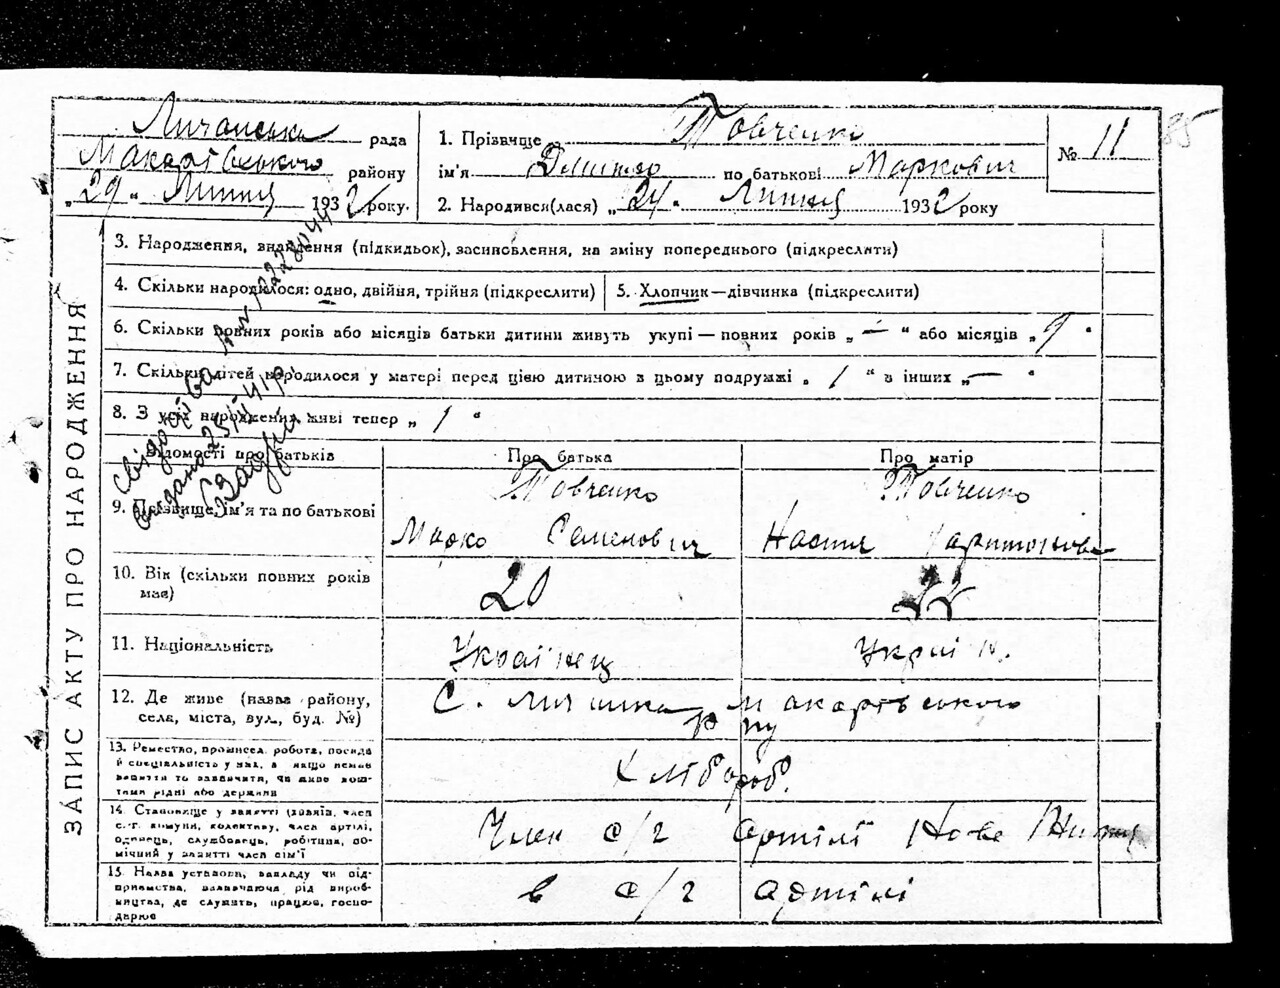 Личанська рада
Макарівського району
„29“ Липця 1932 року.
1. Прізвище Товченко
ім'я Дмитро по батькові Маркович
2. Народився(лася) „24“ Липця 1932 року
№ 11
85
ЗАПИС АКТУ ПРО НАРОДЖЕННЯ
3. Народження, знайдення (підкидьок), засиновлення, на зміну попереднього (підкреслити)
4. Скільки народилося: одно, двійня, трійня (підкреслити)
5. Хлопчик—дівчинка (підкреслити)
6. Скільки повних років або місяців батьки дитини живуть укупі — повних років „—“ або місяців „9“
7. Скільки дітей народилося у матері перед цією дитиною в цьому подружжі „1“ в інших „—“
8. З усіх народжених живі тепер „1“
Свідоцтво
видано 25/
Відомості про батьків
Про батька
Про матір
9. Прізвище, ім'я та по батькові
Товченко
Марко Семенович
Товченко
Настя Харитонівна
10. Вік (скільки повних років має)
20
11. Національність
Українець
Украін.
12. Де живе (назва району, села, міста, вул., буд. №)
С. Личанка Макарівського
р-ну
13. Ремество, промисел, робота, посада й спеціяльність у них, а якщо немає заняття то зазначити, чи живе коштами рідні або держави
Хлібороб.
14. Становище у занятті (хазяїн, член с.-г. комуни, колективу, член артілі, одинець, службовець, робітник, помічний у занятті член сім'ї
Член с/г артілі Нове Життя
15. Назва установи, закладу чи підприємства, зазначаючи рід виробництва, де служить, працює, господарює
в с/г артілі